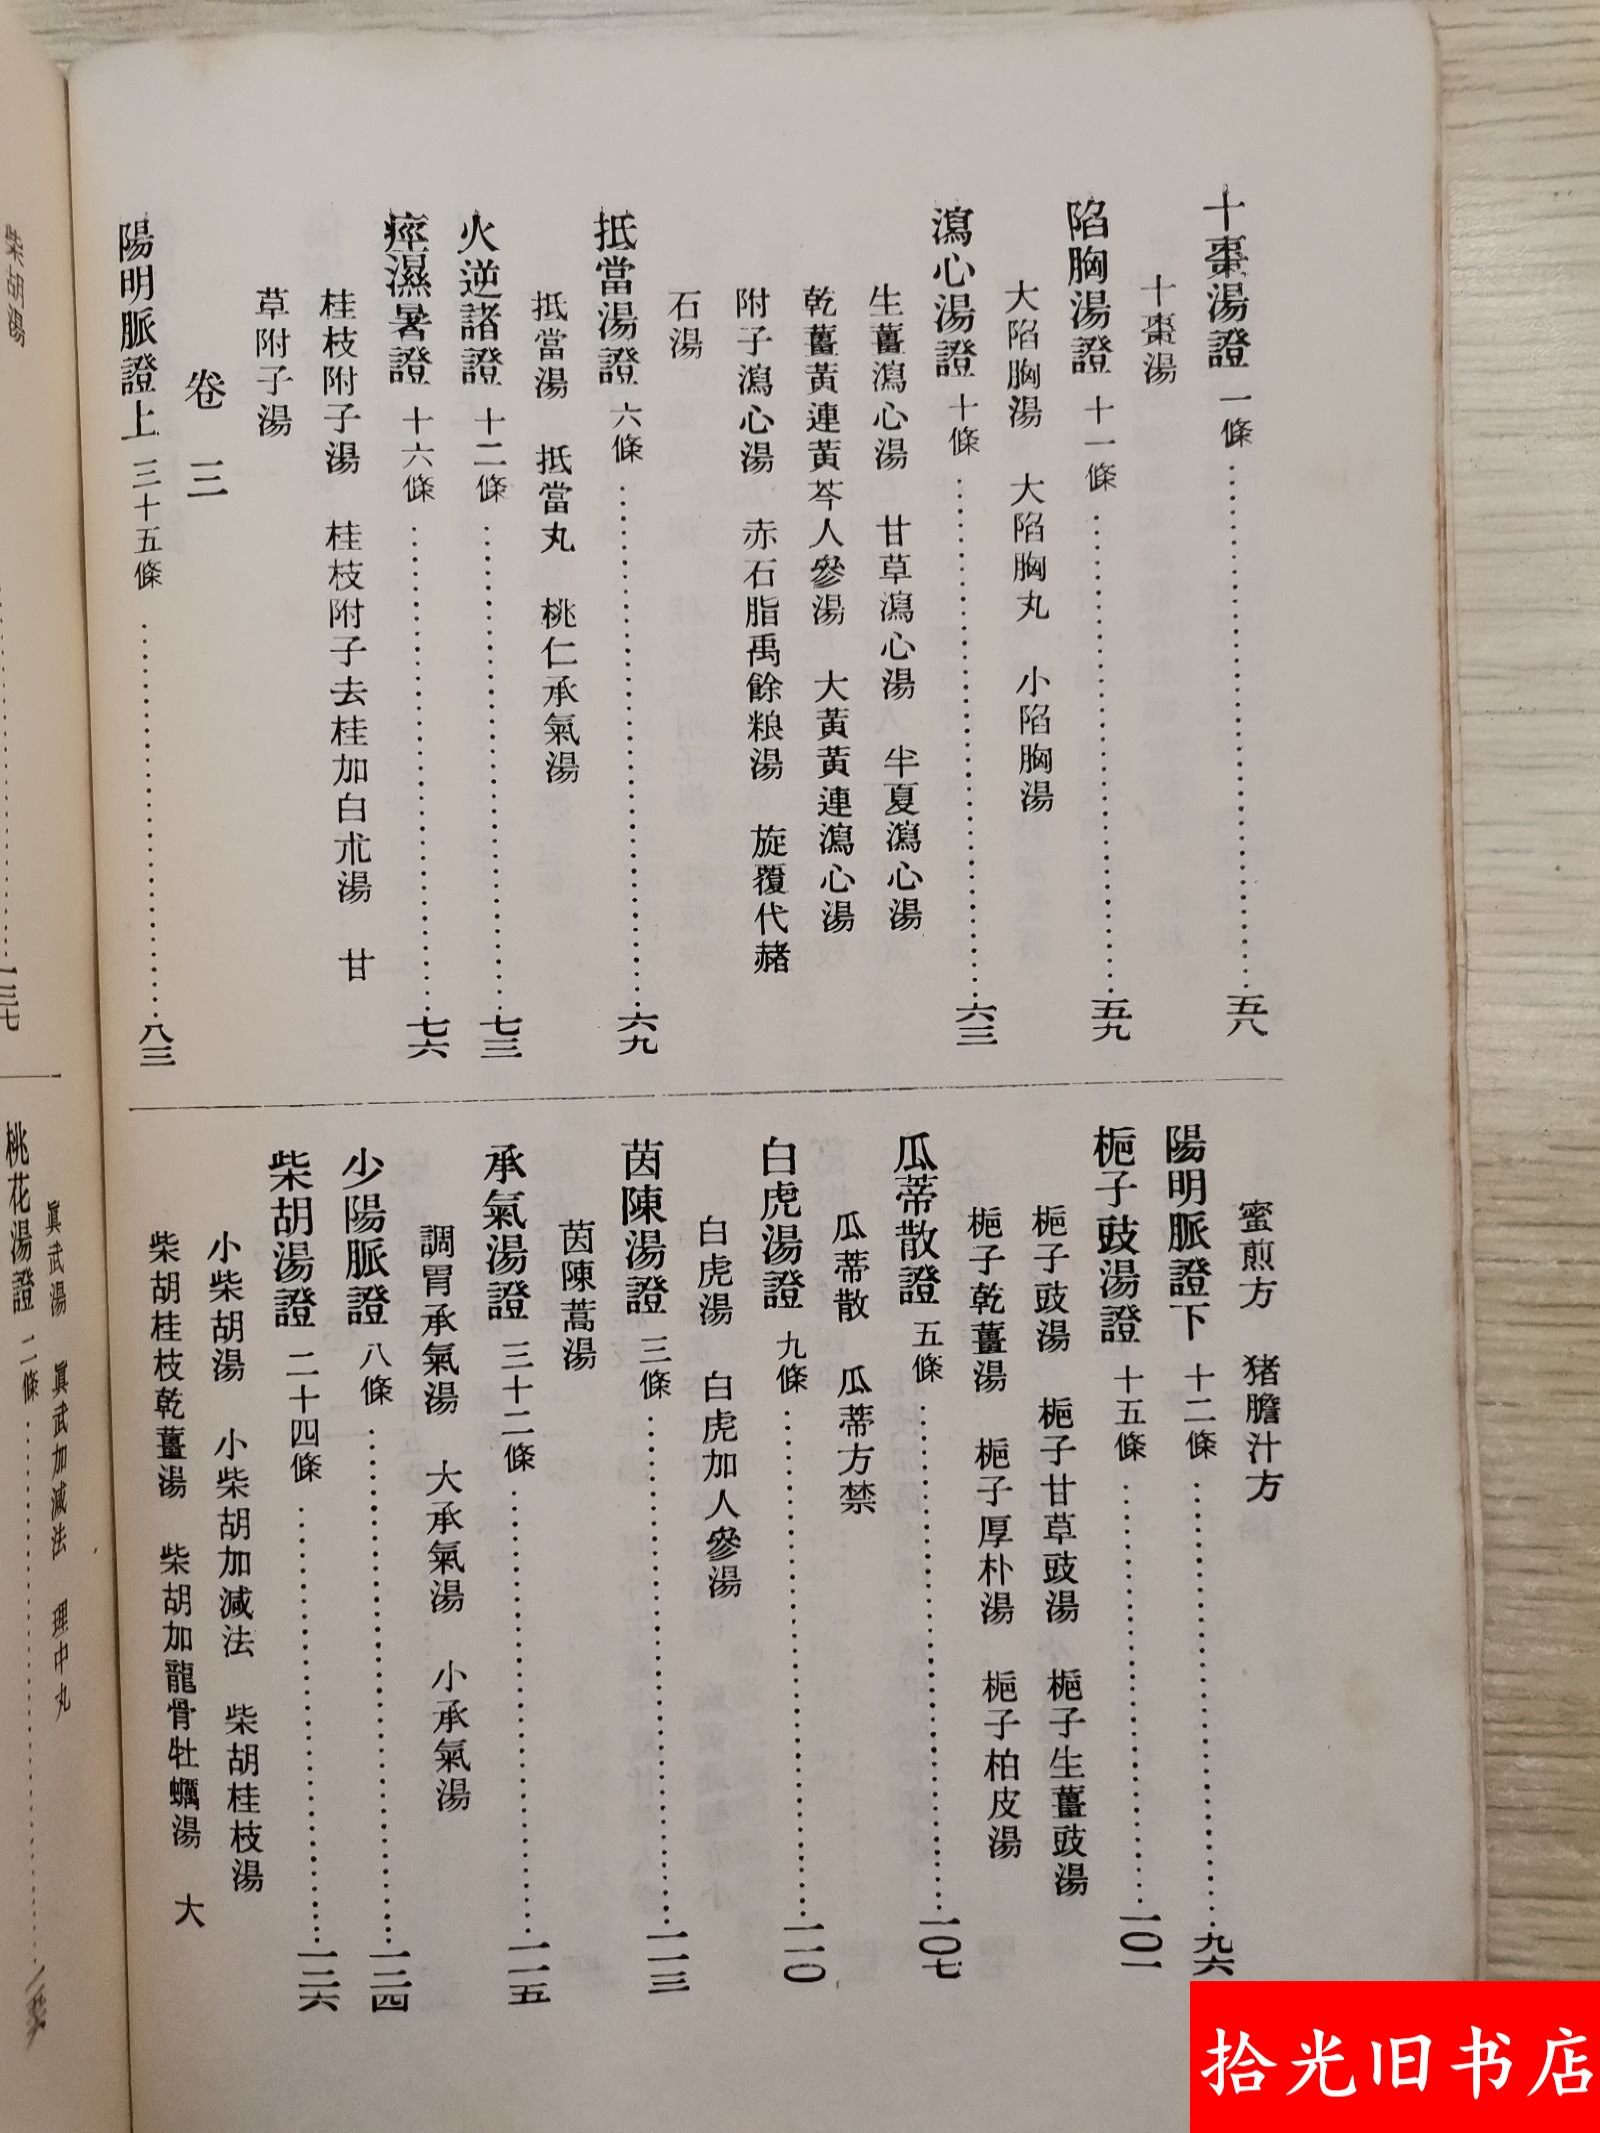 十棗湯證 一條……五八
十棗湯
陷胸湯證 十一條……五九
大陷胸湯 大陷胸丸 小陷胸湯
瀉心湯證 十條……六三
生薑瀉心湯 甘草瀉心湯 半夏瀉心湯
乾薑黃連黃芩人參湯 大黃黃連瀉心湯
附子瀉心湯 赤石脂禹餘粮湯 旋覆代赭
石湯
抵當湯證 六條……六九
抵當湯 抵當丸 桃仁承氣湯
火逆諸證 十二條……七三
痙濕暑證 十六條……七六
桂枝附子湯 桂枝附子去桂加白朮湯 甘
草附子湯
卷三
陽明脈證上 三十五條……八三
蜜煎方 猪膽汁方
陽明脈證下 十二條……九六
梔子豉湯證 十五條……一〇一
梔子豉湯 梔子甘草豉湯 梔子生薑豉湯
梔子乾薑湯 梔子厚朴湯 梔子柏皮湯
瓜蒂散證 五條……一〇七
瓜蒂散 瓜蒂方禁
白虎湯證 九條……一一〇
白虎湯 白虎加人參湯
茵陳湯證 三條……一一三
茵陳蒿湯
承氣湯證 三十二條……一一五
調胃承氣湯 大承氣湯 小承氣湯
少陽脈證 八條……一二四
柴胡湯證 二十四條……一二六
小柴胡湯 小柴胡加減法 柴胡桂枝湯
柴胡桂枝乾薑湯 柴胡加龍骨牡蠣湯 大
柴胡湯
……一三七
眞武湯 眞武加減法 理中丸
桃花湯證 二條……
拾光旧书店